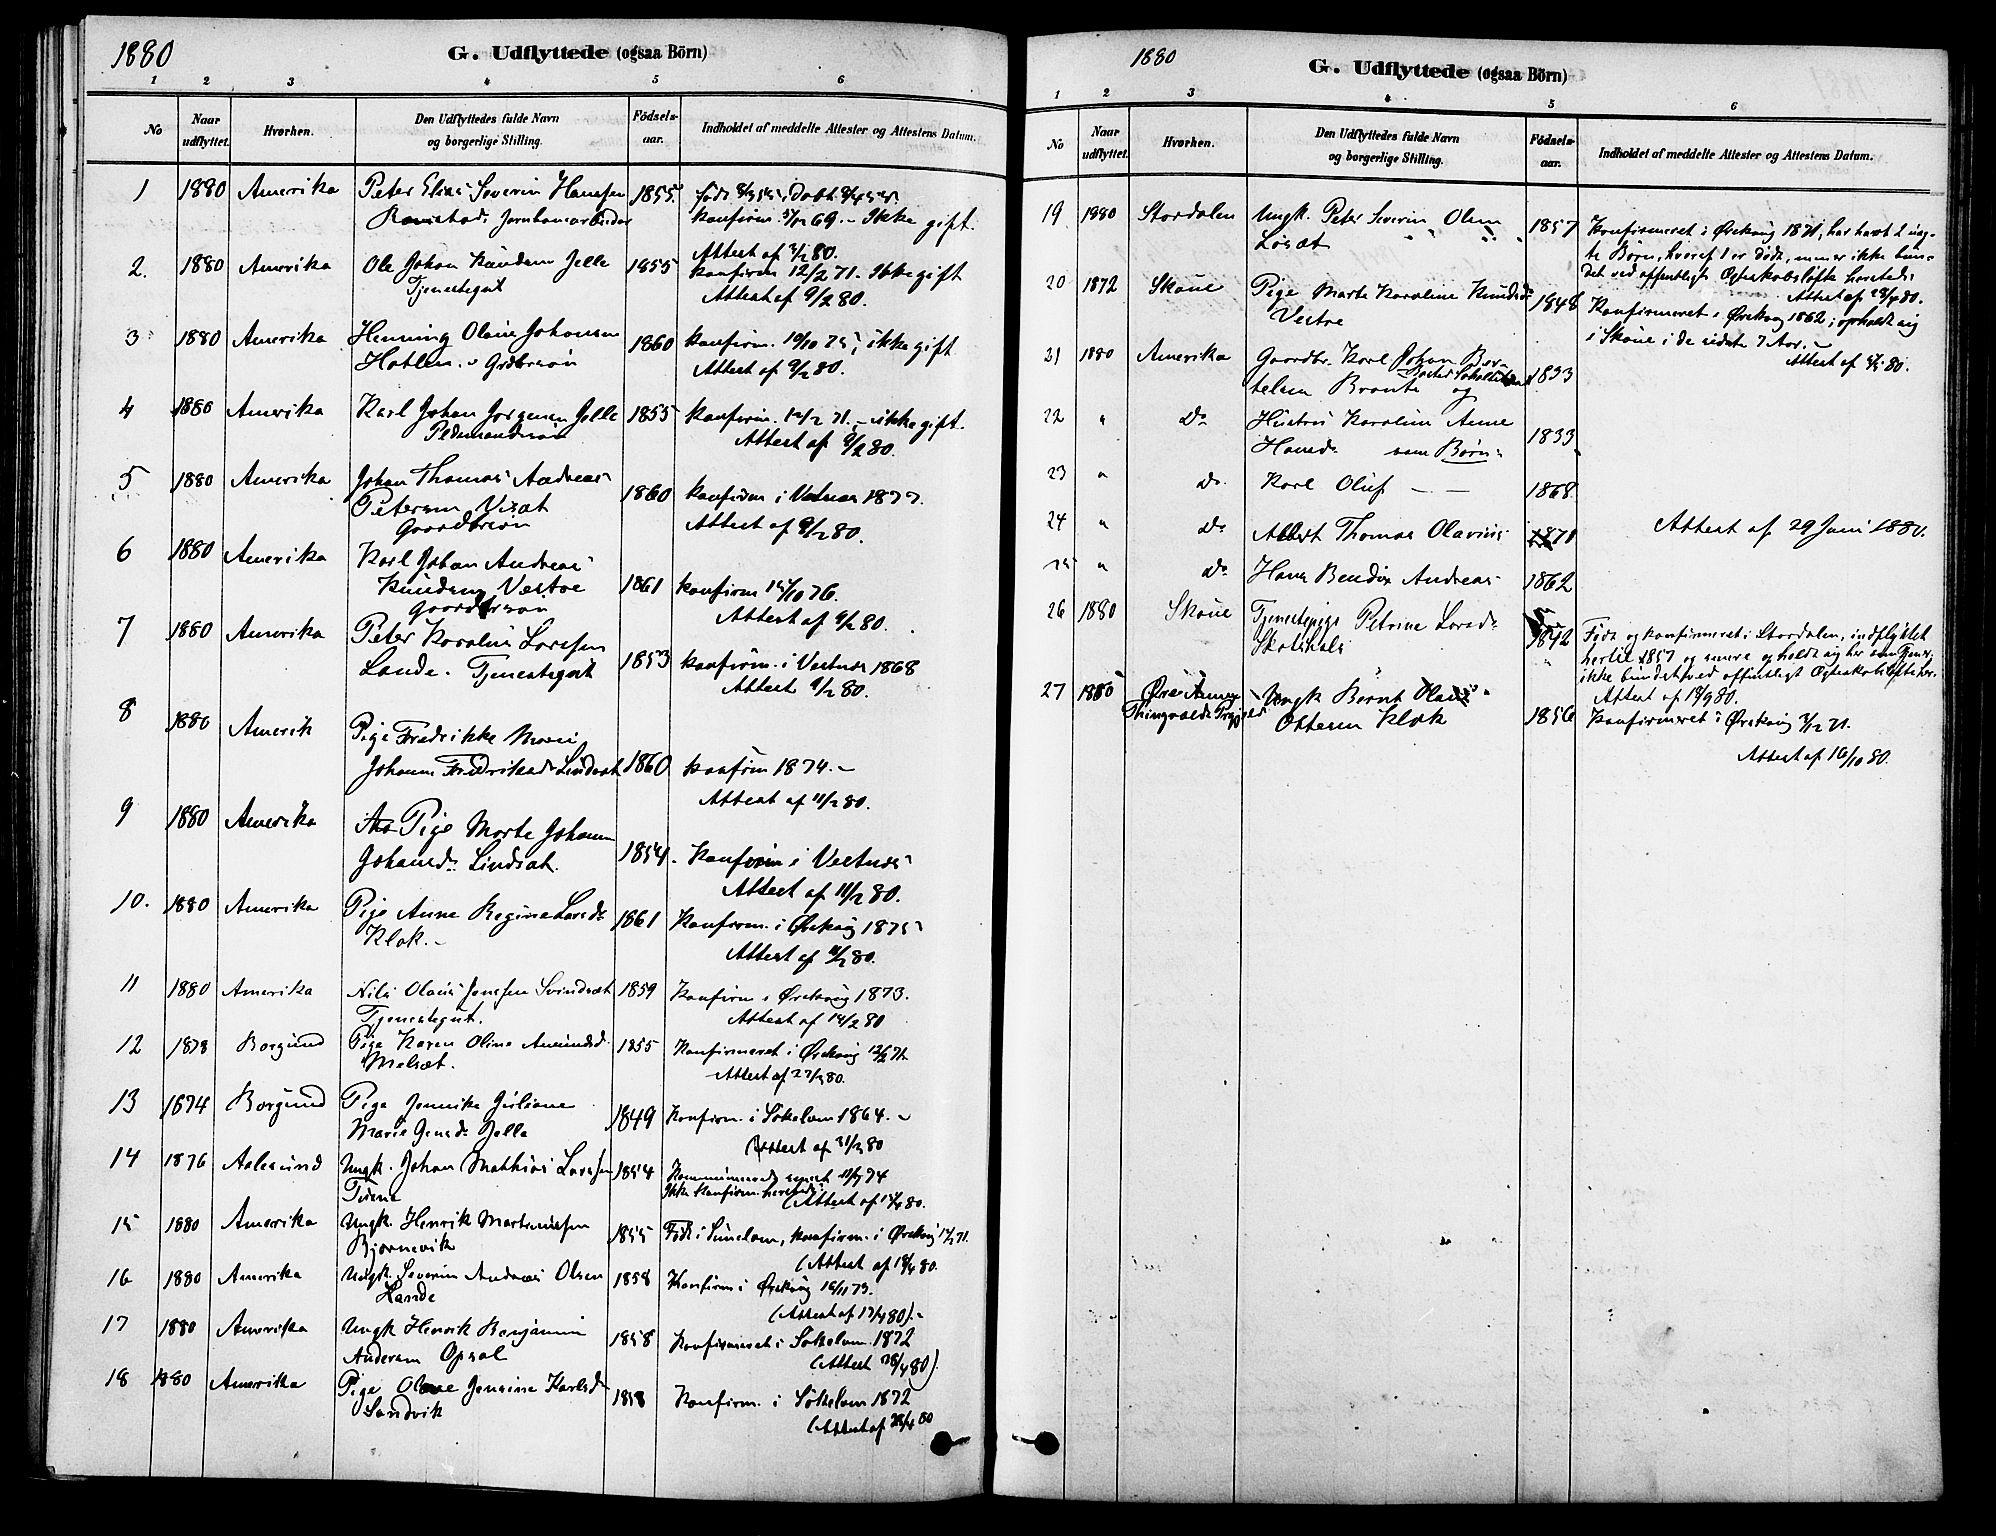 1880
G. Udflyttede (ogsaa Börn)
1 2 3 4 5 6
No
Naar udflyttet.
Hvorhen.
Den Udflyttedes fulde Navn og borgerlige Stilling.
Födsels-aar.
Indholdet af meddelte Attester og Attestens Datum.
1 1880 Amerika Peter Elias Severin Hansen 1855
konfirm. 69. - Ikke gift.
Attest af 80.
2. 1880 Amerika Ole Johan Knudsen Jelle 1855 konfirm 12/2 71. Ikke gift
Tjenestegut Attest af 9/2 80.
3 1880 Amerika Henning Olaus Johansen 1860 konfirm. 19/10 75, ikke gift
Attest af 9/2 80.
4 1880 Amerika Karl Johan Jørgensen Jelle 1855 konfirm. 12/2 71. - ikke gift.
Attest af 9/2 80.
5 1880 Amerika Johan Thomas Andreas
Petersen Viset 1860 konfirm i Vestnes 1877.
Gaardbrsøn Attest af 9/2 80.
6 1880 Amerika Karl Johan Andreas
Knudsen Vestre 1861 konfirm 15/10 76.
Gaardbrsøn Attest af 9/2 80.
7 1880 Amerika Peter Karolus Larsen
Lande. Tjenestegut 1853 konfirm. i Vestnes 1868
Attest 9/2 80.
8 1880 Amerik Pige Fredrikke Marie
Johanne Fredriksd. Lindset 1860 konfirm 1874. -
Attest af 11/2 80.
9 1880 Amerika Pige Marte Johanne
Johansd. Lindset. 1854. Konfirm i Vestnes
Attest af 11/2 80.
10. 1880 Amerika Pige Anne Regine Larsd. 1861 Konfirm. i Ørskoug 1875
Klok. - Attest af 11/2 80.
11 1880 Amerika Nils Olaus Jensen Svindset 1859 Konfirm i Ørskoug 1873.
Tjenestegut. Attest af 14/2 80
12 1878 Borgund Pige Karen Oline Amundsd. 1855 Konfirmeret i Ørskoug 12/2 71.
Melset. Attest af 80.
13 1874 Borgund Pige Jennike Juliane
Marie Jensd. Jelle 1849 Konfirm. i Søkelven 1864. -
Attest af 80
14 1876 Aalesund Ungk. Johan Mathias Larsen 1854
Ikke konfirm. hersteds. (Attest af 80.
15 1880 Amerika Ungk. Henrik Martinussen 1855 Født i Sunelven, konfirm. i Ørskoug 71.
Bjørnevik (Attest af 80.
16 1880 Amerika Ungk. Severin Andreas Olsen 1858 Konfirm i Ørskoug 16/11 73.
Lande (Attest af 17/4 80). -
17 1880 Amerika Ungk Henrik Benjamin
Andersen Opsal 1858 Konfirmeret i Søkelven 1872
(Attest 28/4 80).
18 1880 Amerika Pige Oline Jensine Karlsd. 1858 Konfirm. i Søkelven 1872
Sandvik (Attest af 28/4 80
1880
G. Udflyttede (ogsaa Börn)
1 2 3 4 5 6
No
Naar udflyttet.
Hvorhen.
Den Udflyttedes fulde Navn og borgerlige Stilling.
Födsels-aar.
Indholdet af meddelte Attester og Attestens Datum.
19 1880 Stordalen Ungk. Peter Severin Olsen 1857 Konfirmeret i Ørskoug 1871, har havt 2 uæg-
Løset te Børn, hvoraf 1 er død, men er ikke bun-
det ved offentligt Ægteskabsløfte hersteds
Attest af 28/4 80.
20 1872 Skoue Pige Marte Karoline Knudsd. 1848 Konfirmeret i Ørskoug 1862, opholdt sig
Vestre i Skoue i de sidste 7 Aar. -
Attest af 80.
21 1880 Amerika Gaardbr. Karl Johan Ber-
telsen Braute og 1833
22 " Do Hustru Karoline Anne
Hansd. samt Børn: 1833
23 " Do. Karl Oluf - - 1868.
24 " Do Albert Thomas Olavius 1871 Attest af 29 Juni 1880.
25 " Do Hans Bendix Andreas 1862
26 1880 Skoue Tjenestepige Petrine Larsd.
Skotskals 1842 Født og konfirmeret i Stordalen, indflyttet
hertil 1857 og senere opholdt sig her som Tjener,
ikke bundet ved offentligt Ægteskabsløfte her.
Attest af 80.
27 1880 Ungk Bernt Olaus
Ottesen Klok 1856 Konfirmeret i Ørskoug 71.
Attest af 16/10 80.